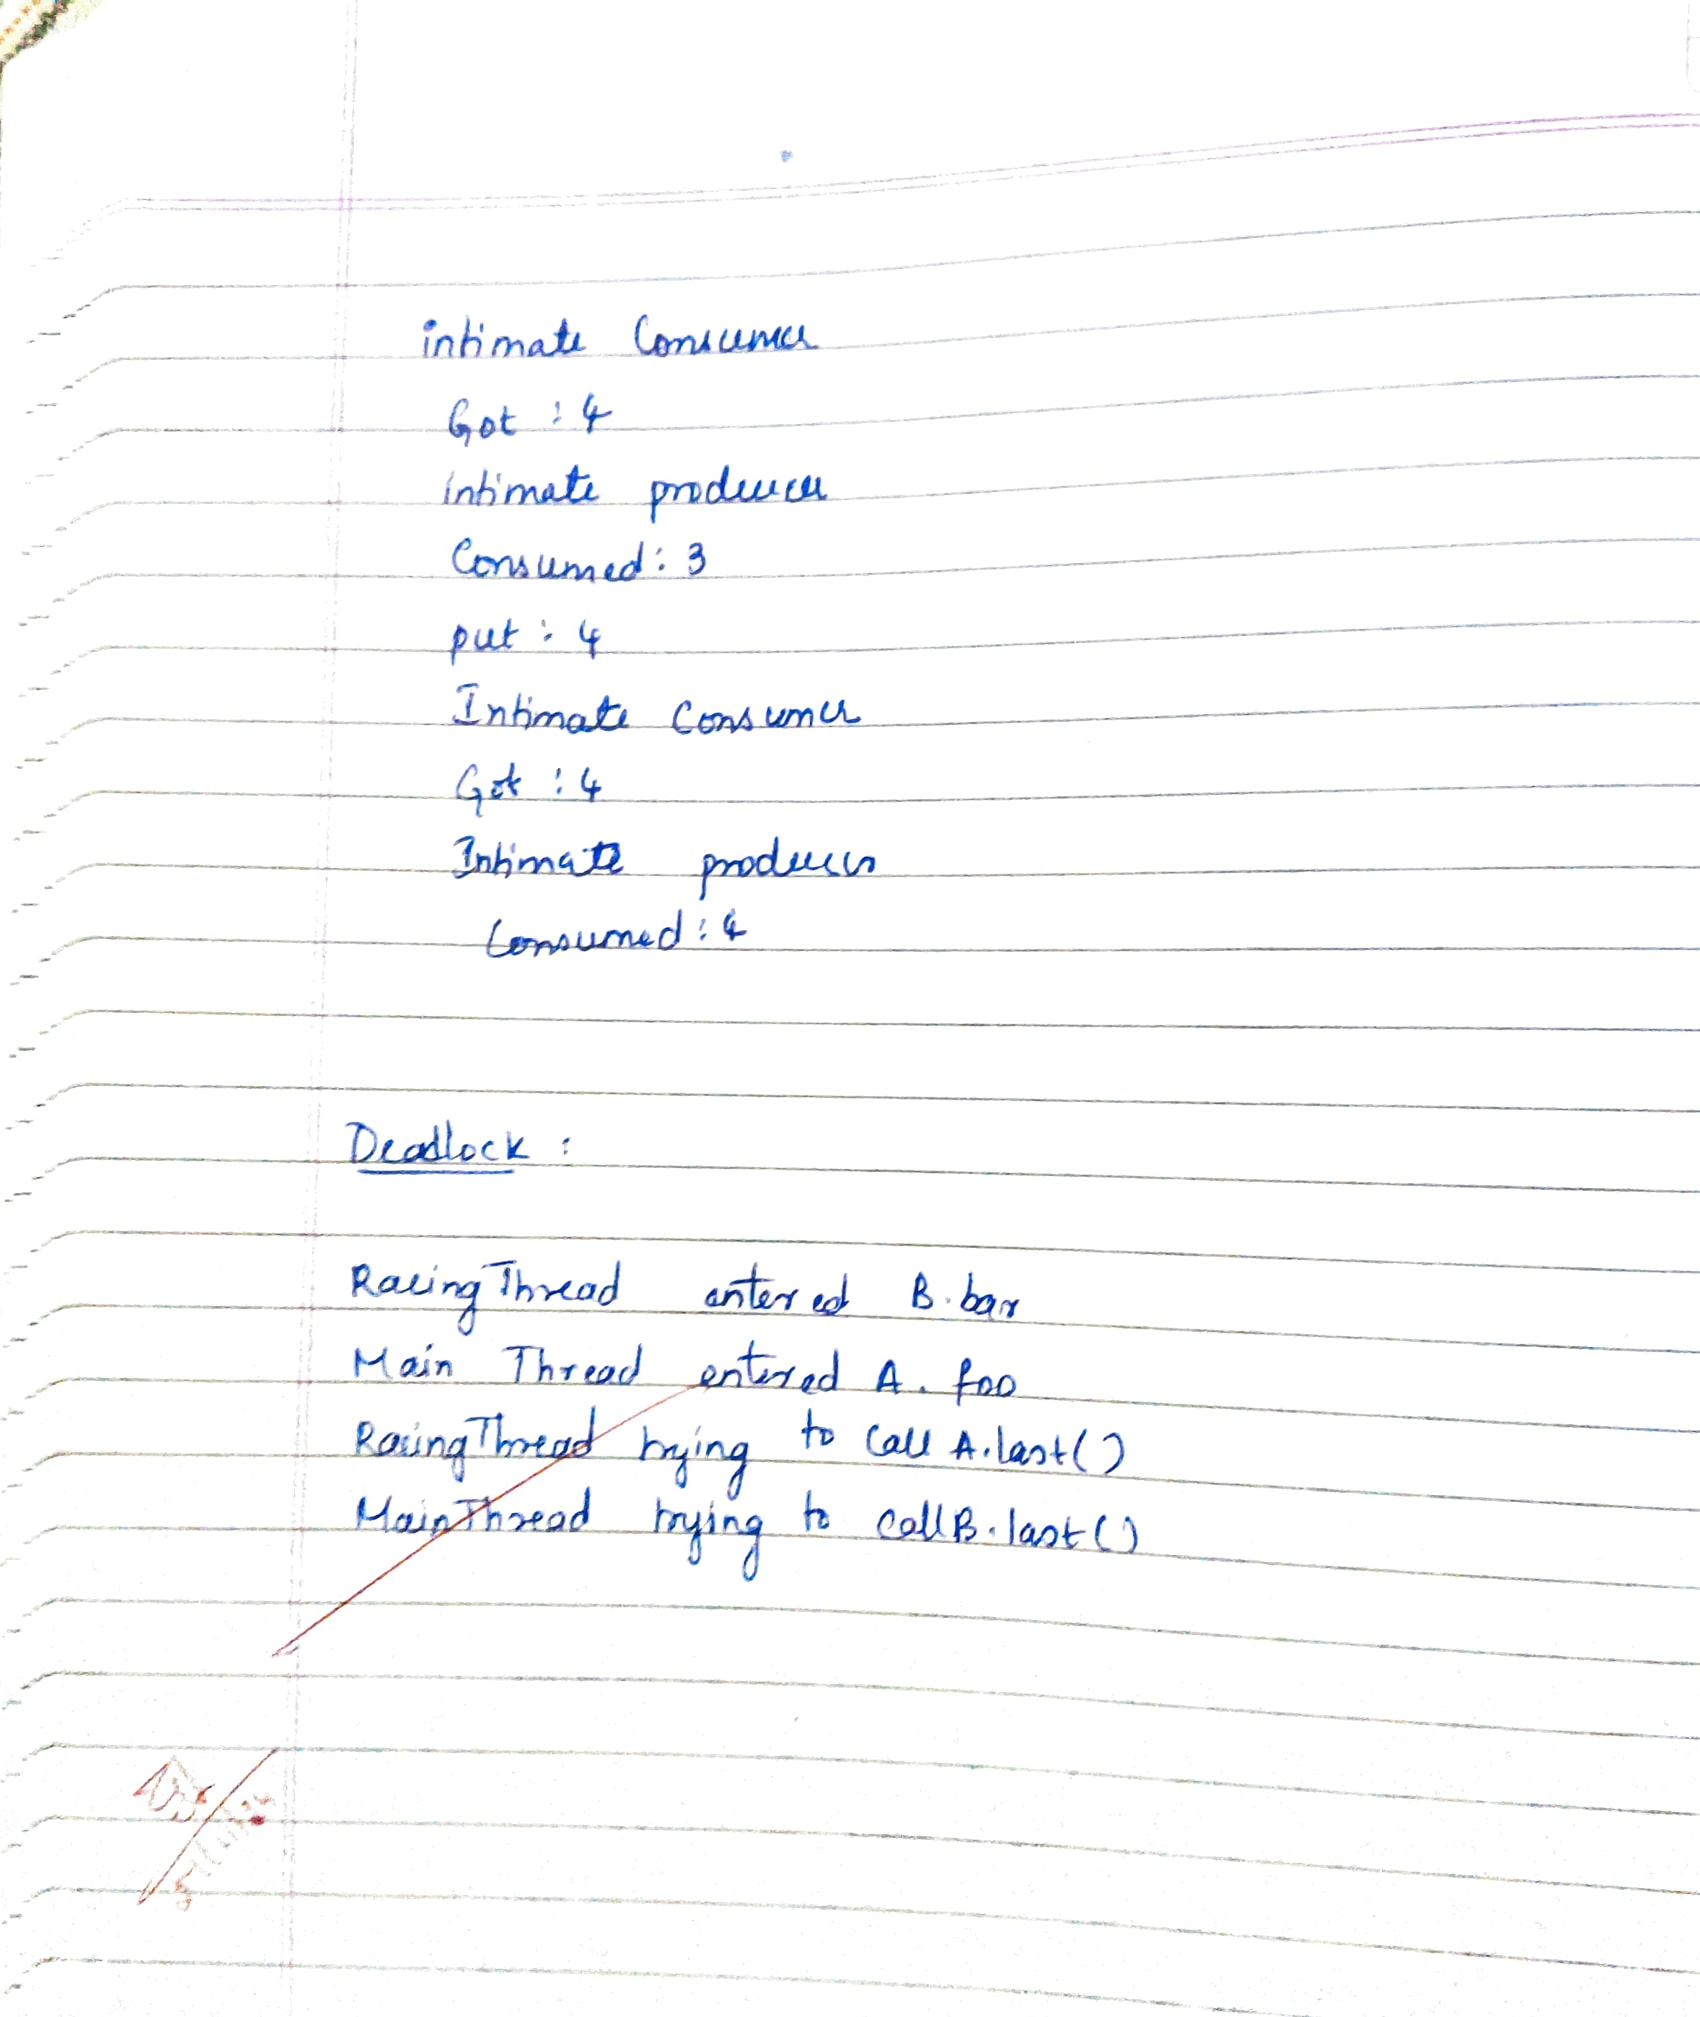 intimate Consumer
Got : 4
intimate producer
Consumed : 3
put : 4
Intimate Consumer
Got : 4
Intimate producer
Consumed : 4
Deadlock :
Racing Thread entered B.bar
Main Thread entered A.foo
Racing Thread trying to call A.last()
Main Thread trying to call B.last()